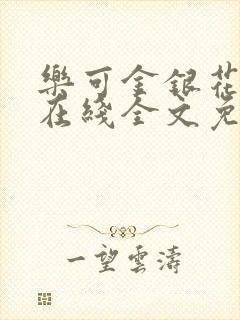 樂可金銀花
在綫全文免
一望雲濤